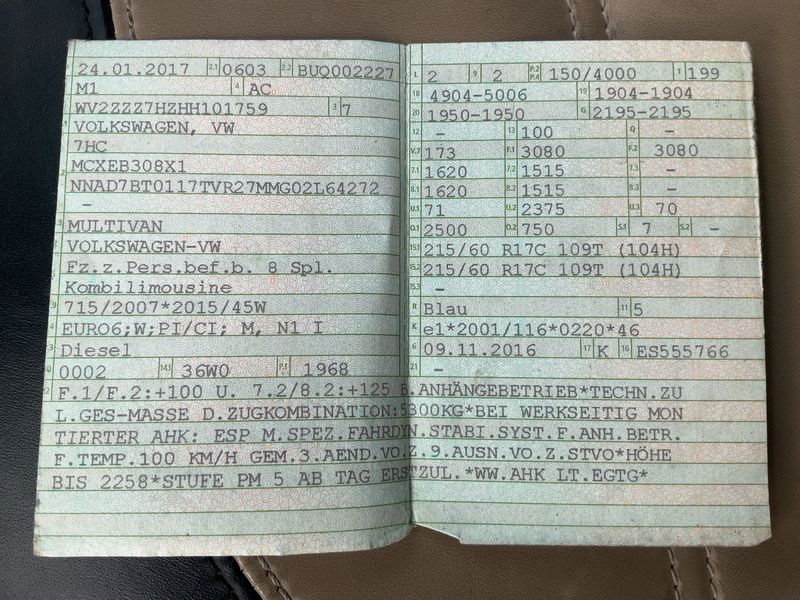 24.01.2017 2.1 0603 2.2 BUQ002227
M1 4 AC
WV2ZZZ7HZHH101759 3 7
VOLKSWAGEN, VW
7HC
MCXEB308X1
NNAD7BT0117TVR27MMG02L64272
–
MULTIVAN
VOLKSWAGEN-VW
Fz.z.Pers.bef.b. 8 Spl.
Kombilimousine
715/2007*2015/45W
EURO6;W;PI/CI; M, N1 I
Diesel
0002 14.1 36W0 P.1 1968
L 2 9 2 P.2 P.4 150/4000 T 199
18 4904-5006 19 1904-1904
20 1950-1950 G 2195-2195
12 – 13 100 Q –
V.7 173 F.1 3080 F.2 3080
7.1 1620 7.2 1515 7.3 –
8.1 1620 8.2 1515 8.3 –
U.1 71 U.2 2375 U.3 70
O.1 2500 O.2 750 S.1 7 S.2 –
15.1 215/60 R17C 109T (104H)
15.2 215/60 R17C 109T (104H)
15.3 –
R Blau 11 5
K e1*2001/116*0220*46
6 09.11.2016 17 K 16 ES555766
21 –
F.1/F.2:+100 U. 7.2/8.2:+125 B.ANHÄNGEBETRIEB*TECHN.ZU
L.GES-MASSE D.ZUGKOMBINATION:5300KG*BEI WERKSEITIG MON
TIERTER AHK: ESP M.SPEZ.FAHRDYN.STABI.SYST.F.ANH.BETR.
F.TEMP.100 KM/H GEM.3.AEND.VO.Z.9.AUSN.VO.Z.STVO*HÖHE
BIS 2258*STUFE PM 5 AB TAG ERSTZUL.*WW.AHK LT.EGTG*